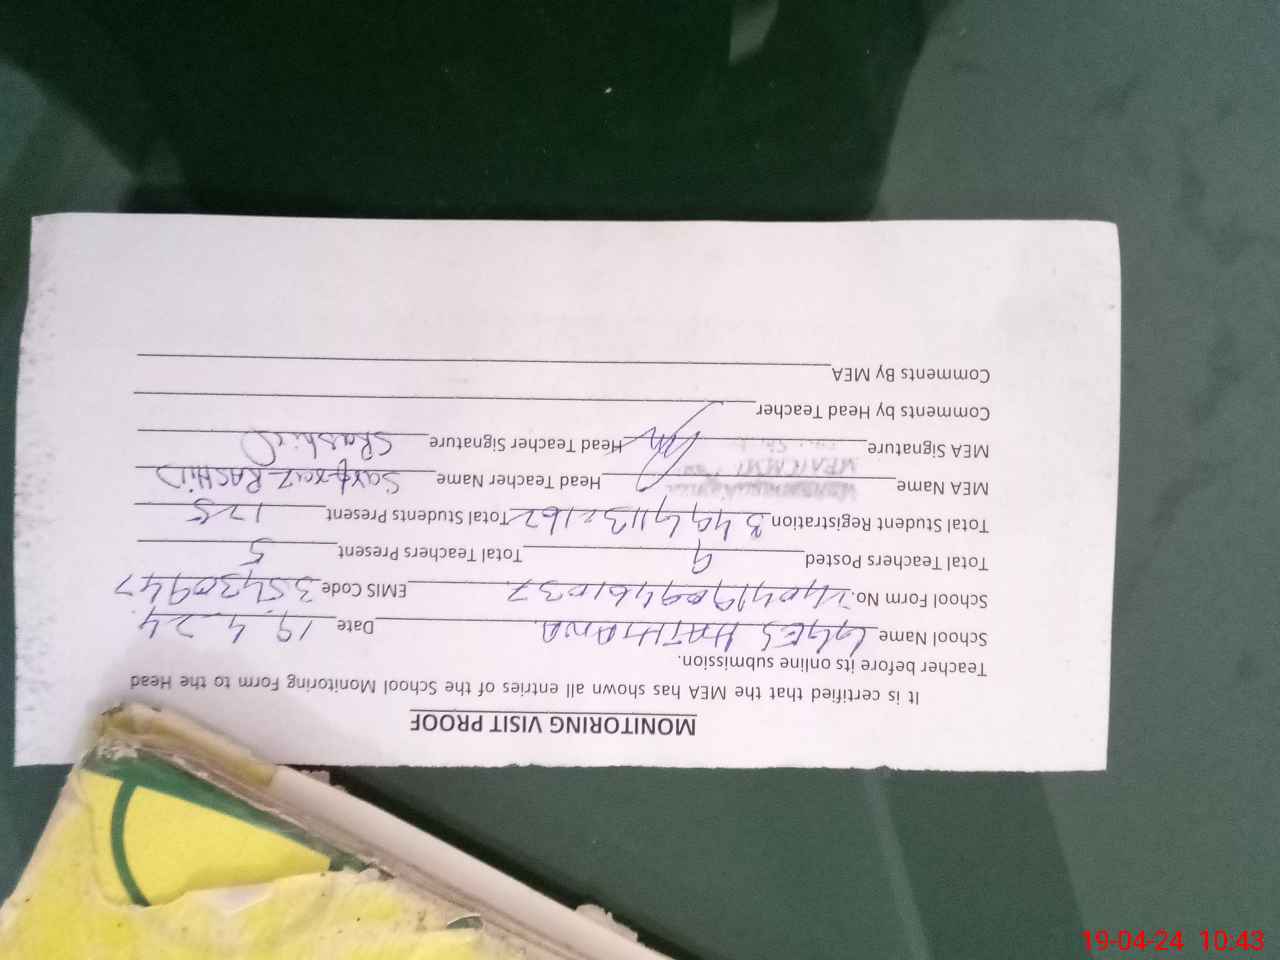 MONITORING VISIT PROOF
It is certified that the MEA has shown all entries of the School Monitoring Form to the Head
Teacher before its online submission.
School Name GGES HATHIANA. Date 19.4.24
School Form No. 240419094461037 EMIS Code 35430947
Total Teachers Posted 9 Total Teachers Present 5
Total Student Registration Total Students Present 175
MEA Name Head Teacher Name RASHID
MEA Signature Head Teacher Signature SRashid
Comments by Head Teacher
Comments By MEA
19-04-24 10:43